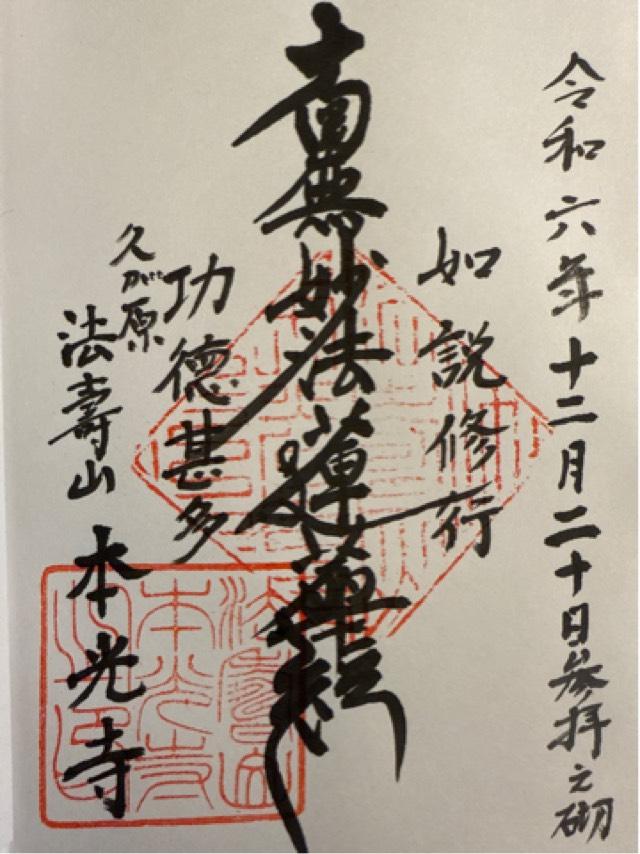 令和六年十二月二十日参拝之砌
如説修行
南無妙法蓮華経
功德甚多
久が原
法壽山
本光寺